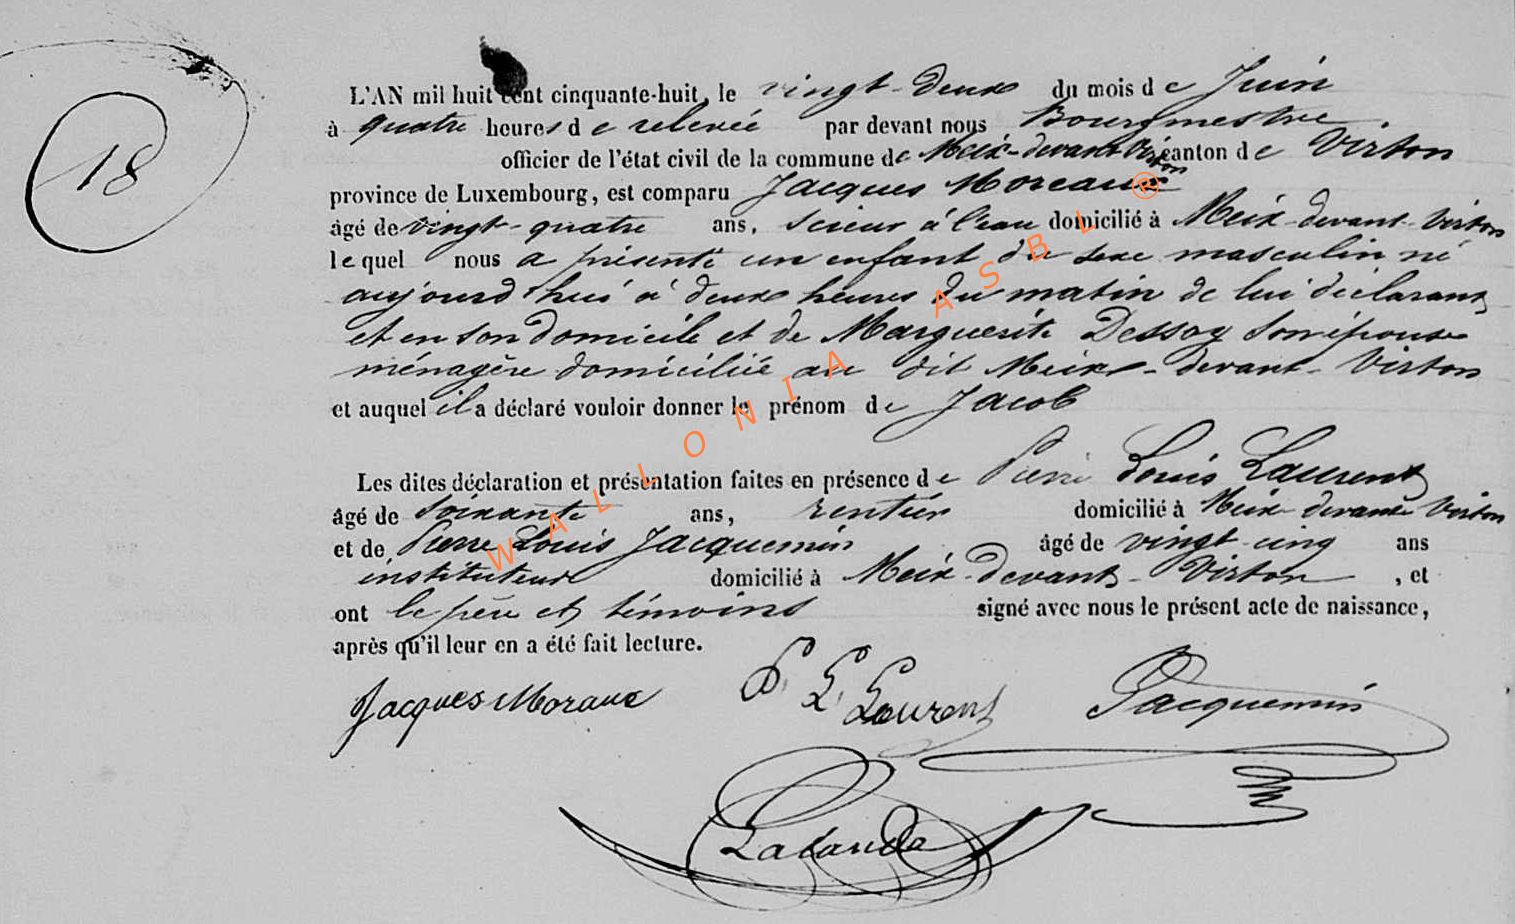 18
L'AN mil huit cent cinquante-huit, le vingt-deux du mois de Juin
à quatre heures de relevée par devant nous Bourgmestre
officier de l'état civil de la commune de Meix-devant-Virton canton de Virton
province de Luxembourg, est comparu Jacques Moreaux
âgé de vingt-quatre ans, scieur à l'eau domicilié à Meix-devant-Virton
lequel nous a présenté un enfant du sexe masculin né
aujourd'hui à deux heures du matin de lui déclarant
et en son domicile et de Marguerite Dessoy son épouse
ménagère domiciliée au dit Meix-devant-Virton
et auquel il a déclaré vouloir donner le prénom de Jacob
Les dites déclaration et présentation faites en présence de Pierre Louis Laurent
âgé de soixante ans, rentier domicilié à Meix-devant-Virton
et de Pierre Louis Jacquemin âgé de vingt-cinq ans
instituteur domicilié à Meix-devant-Virton, et
ont le père et témoins signé avec nous le présent acte de naissance,
après qu'il leur en a été fait lecture.
Jacques Moraux P. L. Laurent Jacquemin
Lalande
WALLONIA ASBL ®